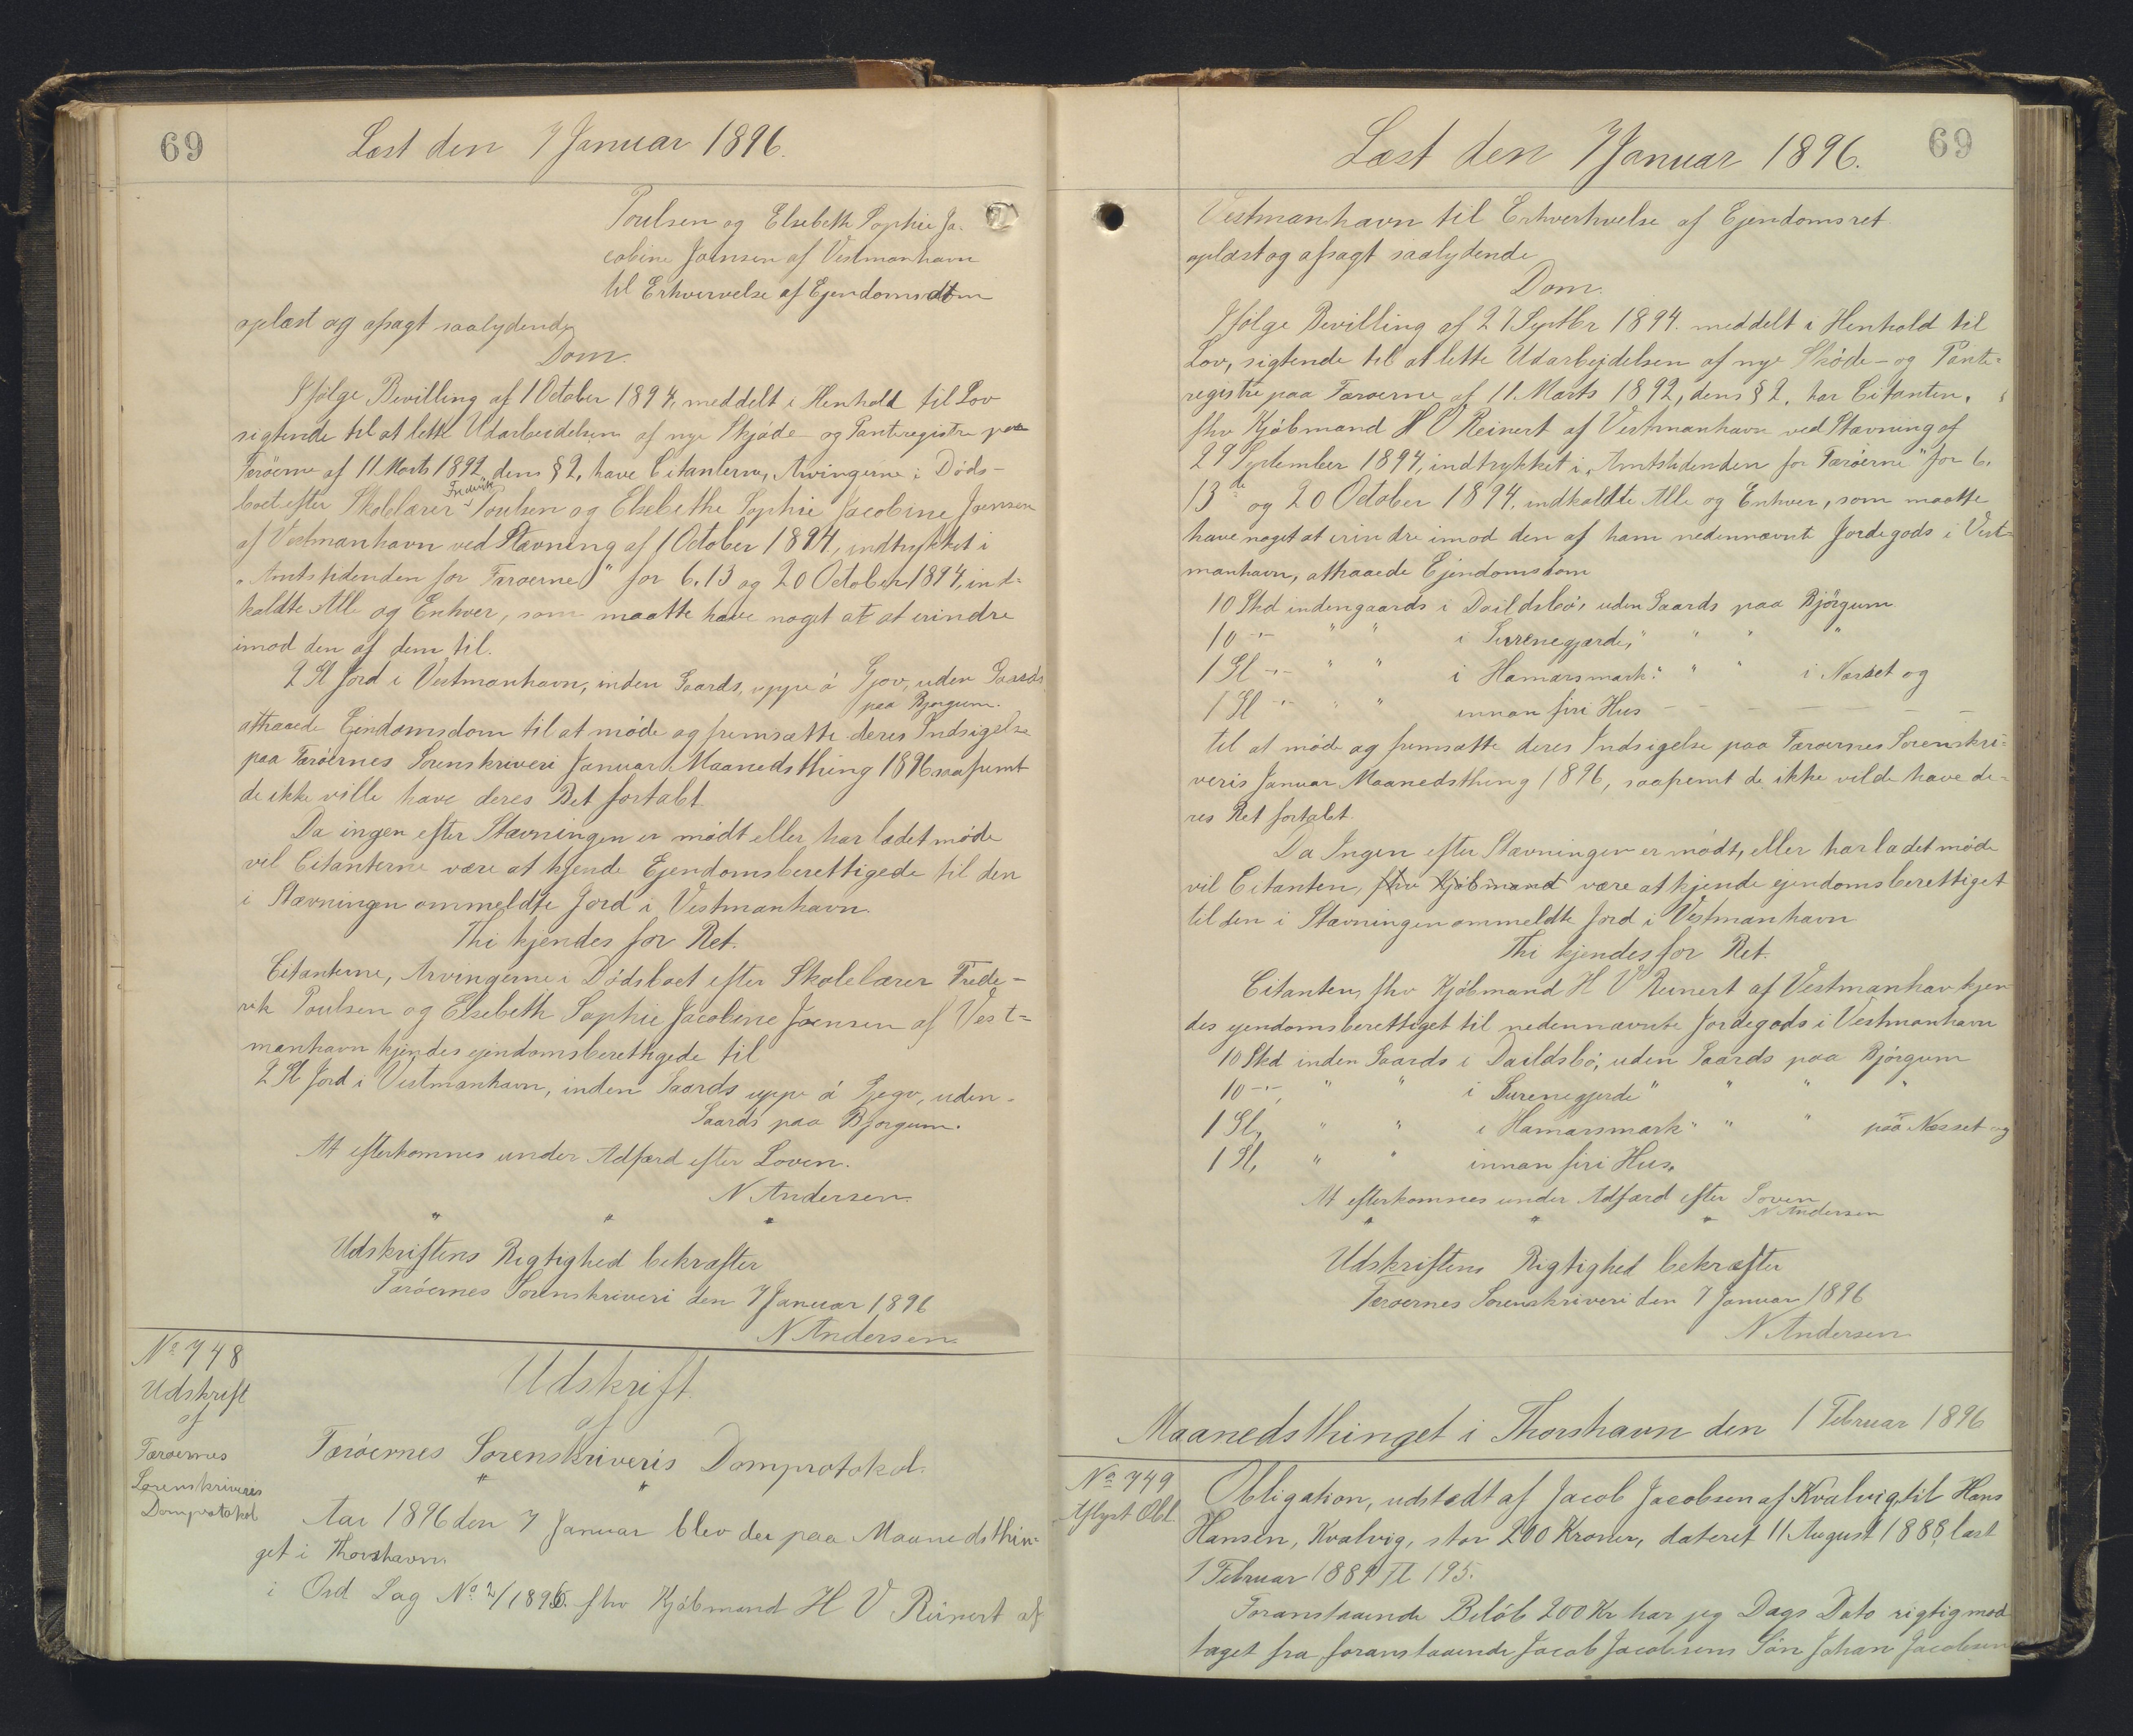 69
Læst den 7 Januar 1896.
Poulsen og Elsebeth Sophie Ja-
cobine Joensen af Vestmanhavn
til Erhvervelse af Ejendomsdom
oplæst og afsagt saalydende
Dom.
Ifølge Bevilling af 1 October 1894, meddelt i Henhold til Lov
sigtende til at lette Udarbeidelsen af nye Skjøde- og Panteregistre paa
Færöerne af 11. Marts 1892 dens § 2, have Citanterne, Arvingerne i Døds-
boet efter Skolelærer Fredrik Poulsen og Elsebethe Sophie Jacobine Joensen
af Vestmanhavn ved Stævning af 1 October 1894, indtrykket i
"Amtstidenden for Færöerne" for 6. 13 og 20 October 1894, ind-
kaldte Alle og Enhver, som maatte have noget at at erindre
imod den af dem til.
2 Gl Jord i Vestmanhavn, inden Gaards, uppe á Gjov, uden Gaards
paa Bjørgum.
attraaede Ejendomsdom til at møde og fremsætte deres Indsigelse
paa Færöernes Sorenskriveri Januar Maanedsthing 1896 saafremt
de ikke ville have deres Ret fortabt.
Da ingen efter Stævningen er mødt eller har ladet møde
vil Citanterne være at kjende Ejendomsberettigede til den
i Stævningen ommeldte Jord i Vestmanhavn.
Thi kjendes for Ret.
Citanterne, Arvingerne i Dødsboet efter Skolelærer Frede-
rik Poulsen og Elsebeth Sophie Jacobine Joensen af Vest-
manhavn kjendes ejendomsberettigede til
2 Gl Jord i Vestmanhavn, inden Gaards uppe á Gjegv, uden-
Gaards paa Bjørgum.
At efterkommes under Adfærd efter Loven.
N Andersen.
" " "
Udskriftens Rigtighed bekræfter
Færöernes Sorenskriveri den 7 Januar 1896
N Andersen.
No 748
Udskrift
af
Færøernes
Sorenskriveris
Domprotokol
Udskrift
af
Færöernes Sorenskriveris Domprotokol.
" "
Aar 1896 den 7 Januar blev der paa Maanedsthin-
get i Thorshavn
i Ord Sag No 2/1896. fhv Kjøbmand H V Reinert af
69
Læst den 7 Januar 1896.
Vestmanhavn til Erhverhvelse af Ejendomsret
oplæst og afsagt saalydende
Dom.
Ifølge Bevilling af 27 Septbr 1894. meddelt i Henhold til
Lov, sigtende til at lette Udarbejdelsen af nye Skøde- og Pante-
registre paa Færoerne af 11. Marts 1892, dens § 2, har Citanten,
fhv Kjøbmand H V Reinert af Vestmanhavn ved Stævning af
29 September 1894, indtrykket i "Amtstidenden for Færöerne" for 6.
13de og 20 October 1894. indkaldte Alle og Enhver, som maatte
have noget at erindre imod den af ham nedennævnte Jordegods i Vest-
manhavn, attraaede Ejendomsdom
10 Skd indengaards i Daildsbø, uden Gaards paa Bjørgum
10 -"- " " i Turrenegjærde, " " " "
1 Gl -"- " " i Hamarsmark: " " i Næsset og
1 Gl -"- " " innan firi Hus - - - - - -
til at møde og fremsætte deres Indsigelse paa Færøernes Sorenskri-
veris Januar Maanedsthing 1896, saafremt de ikke vilde have de-
res Ret fortabt.
Da Ingen efter Stævningen er mødt, eller har ladet møde
vil Citanten, fhv Kjøbmand være at kjende ejendomsberettiget
til den i Stævningen ommeldte Jord i Vestmanhavn
Thi kjendes for Ret.
Citanten, fhv Kjøbmand H V Reinert af Vestmanhav kjen
des ejendomsberettiget til nedennævnte Jordegods i Vestmanhavn
10 Skd inden Gaards i Daildsbø, uden Gaards paa Bjørgum
10 -"-, " " i Turenegjerde " " " "
1 Gl, " " i Hamarsmark " " " paa Næsset og
1 Gl, " " innan firi Hus.
At efterkommes under Adfærd efter Loven
N Andersen
" " "
Udskriftens Rigtighed bekræfter
Færøernes Sorenskriveri den 7 Januar 1896
N Andersen.
Maanedsthinget i Thorshavn den 1 Februar 1896
No 749
Aflyst Obl
Obligation, udstedt af Jacob Jacobsen af Kvalvig, til Hans
Hansen, Kvalvig, stor 200 Kroner, dateret 11 August 1888, læst
1 Februar 1889 Fl 195.
Foranstaaende Beløb 200 Kr har jeg Dags Dato rigtig mod
taget fra foranstaaende Jacob Jacobsens Søn Johan Jacobsen